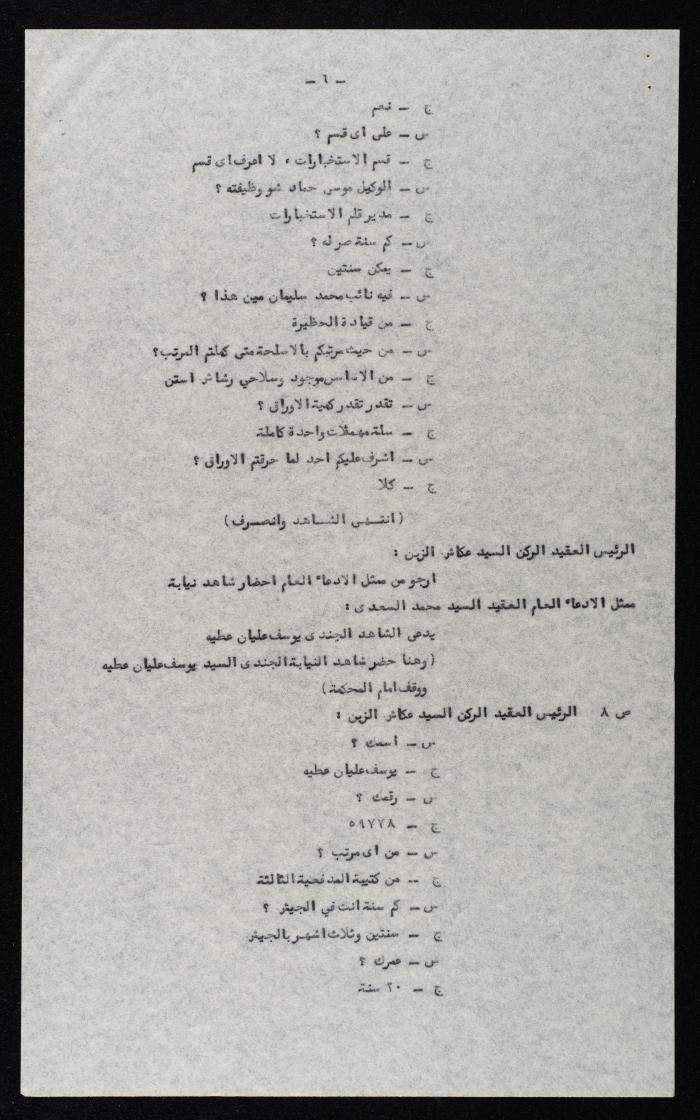 ـ ٦ ـ
ج ـ نعم
س ـ على اى قسم ؟
ج ـ قسم الاستخبارات ، لا اعرف اى قسم
س ـ الوكيل موسى حماد شو وظيفته ؟
ج ـ مدير قلم الاستخبارات
س ـ كم سنة صر له ؟
ج ـ يمكن سنتين
س ـ فيه نائب محمد سليمان مين هذا ؟
ج ـ من قيادة الحظيرة
س ـ من حيث مرتبكم بالاسلحة متى كملتم المرتب؟
ج ـ من الاساس موجود وسلاحي رشاش استن
س ـ تقدر تقدر كمية الاوراق ؟
ج ـ سلة مهملات واحدة كاملة
س ـ اشرف عليكم احد لما حرقتم الاوراق ؟
ج ـ كلا
( انتـهى الشـاهد وانصـرف )
الرئيس العقيد الركن السيد عكاش الزبن :
ارجو من ممثل الادعاء العام احضار شاهد نيابة
ممثل الادعاء العام العقيد السيد محمد السعدى :
يدعى الشاهد الجندى يوسف عليان عطيه
( وهنا حضر شاهد النيابة الجندى السيد يوسف عليان عطيه
ووقف امام المحكمة )
ص ٨ الرئيس العقيد الركن السيد عكاش الزبن :
س ـ أسمك ؟
ج ـ يوسف عليان عطيه
س ـ رقمك ؟
ج ـ ٥٩٧٧٨
س ـ من اى مرتب ؟
ج ـ من كتيبة المدفعية الثالثة
س ـ كم سنة انت في الجيش ؟
ج ـ سنتين وثلاث اشهر بالجيش
س ـ عمرك ؟
ج ـ ٢٠ سنة